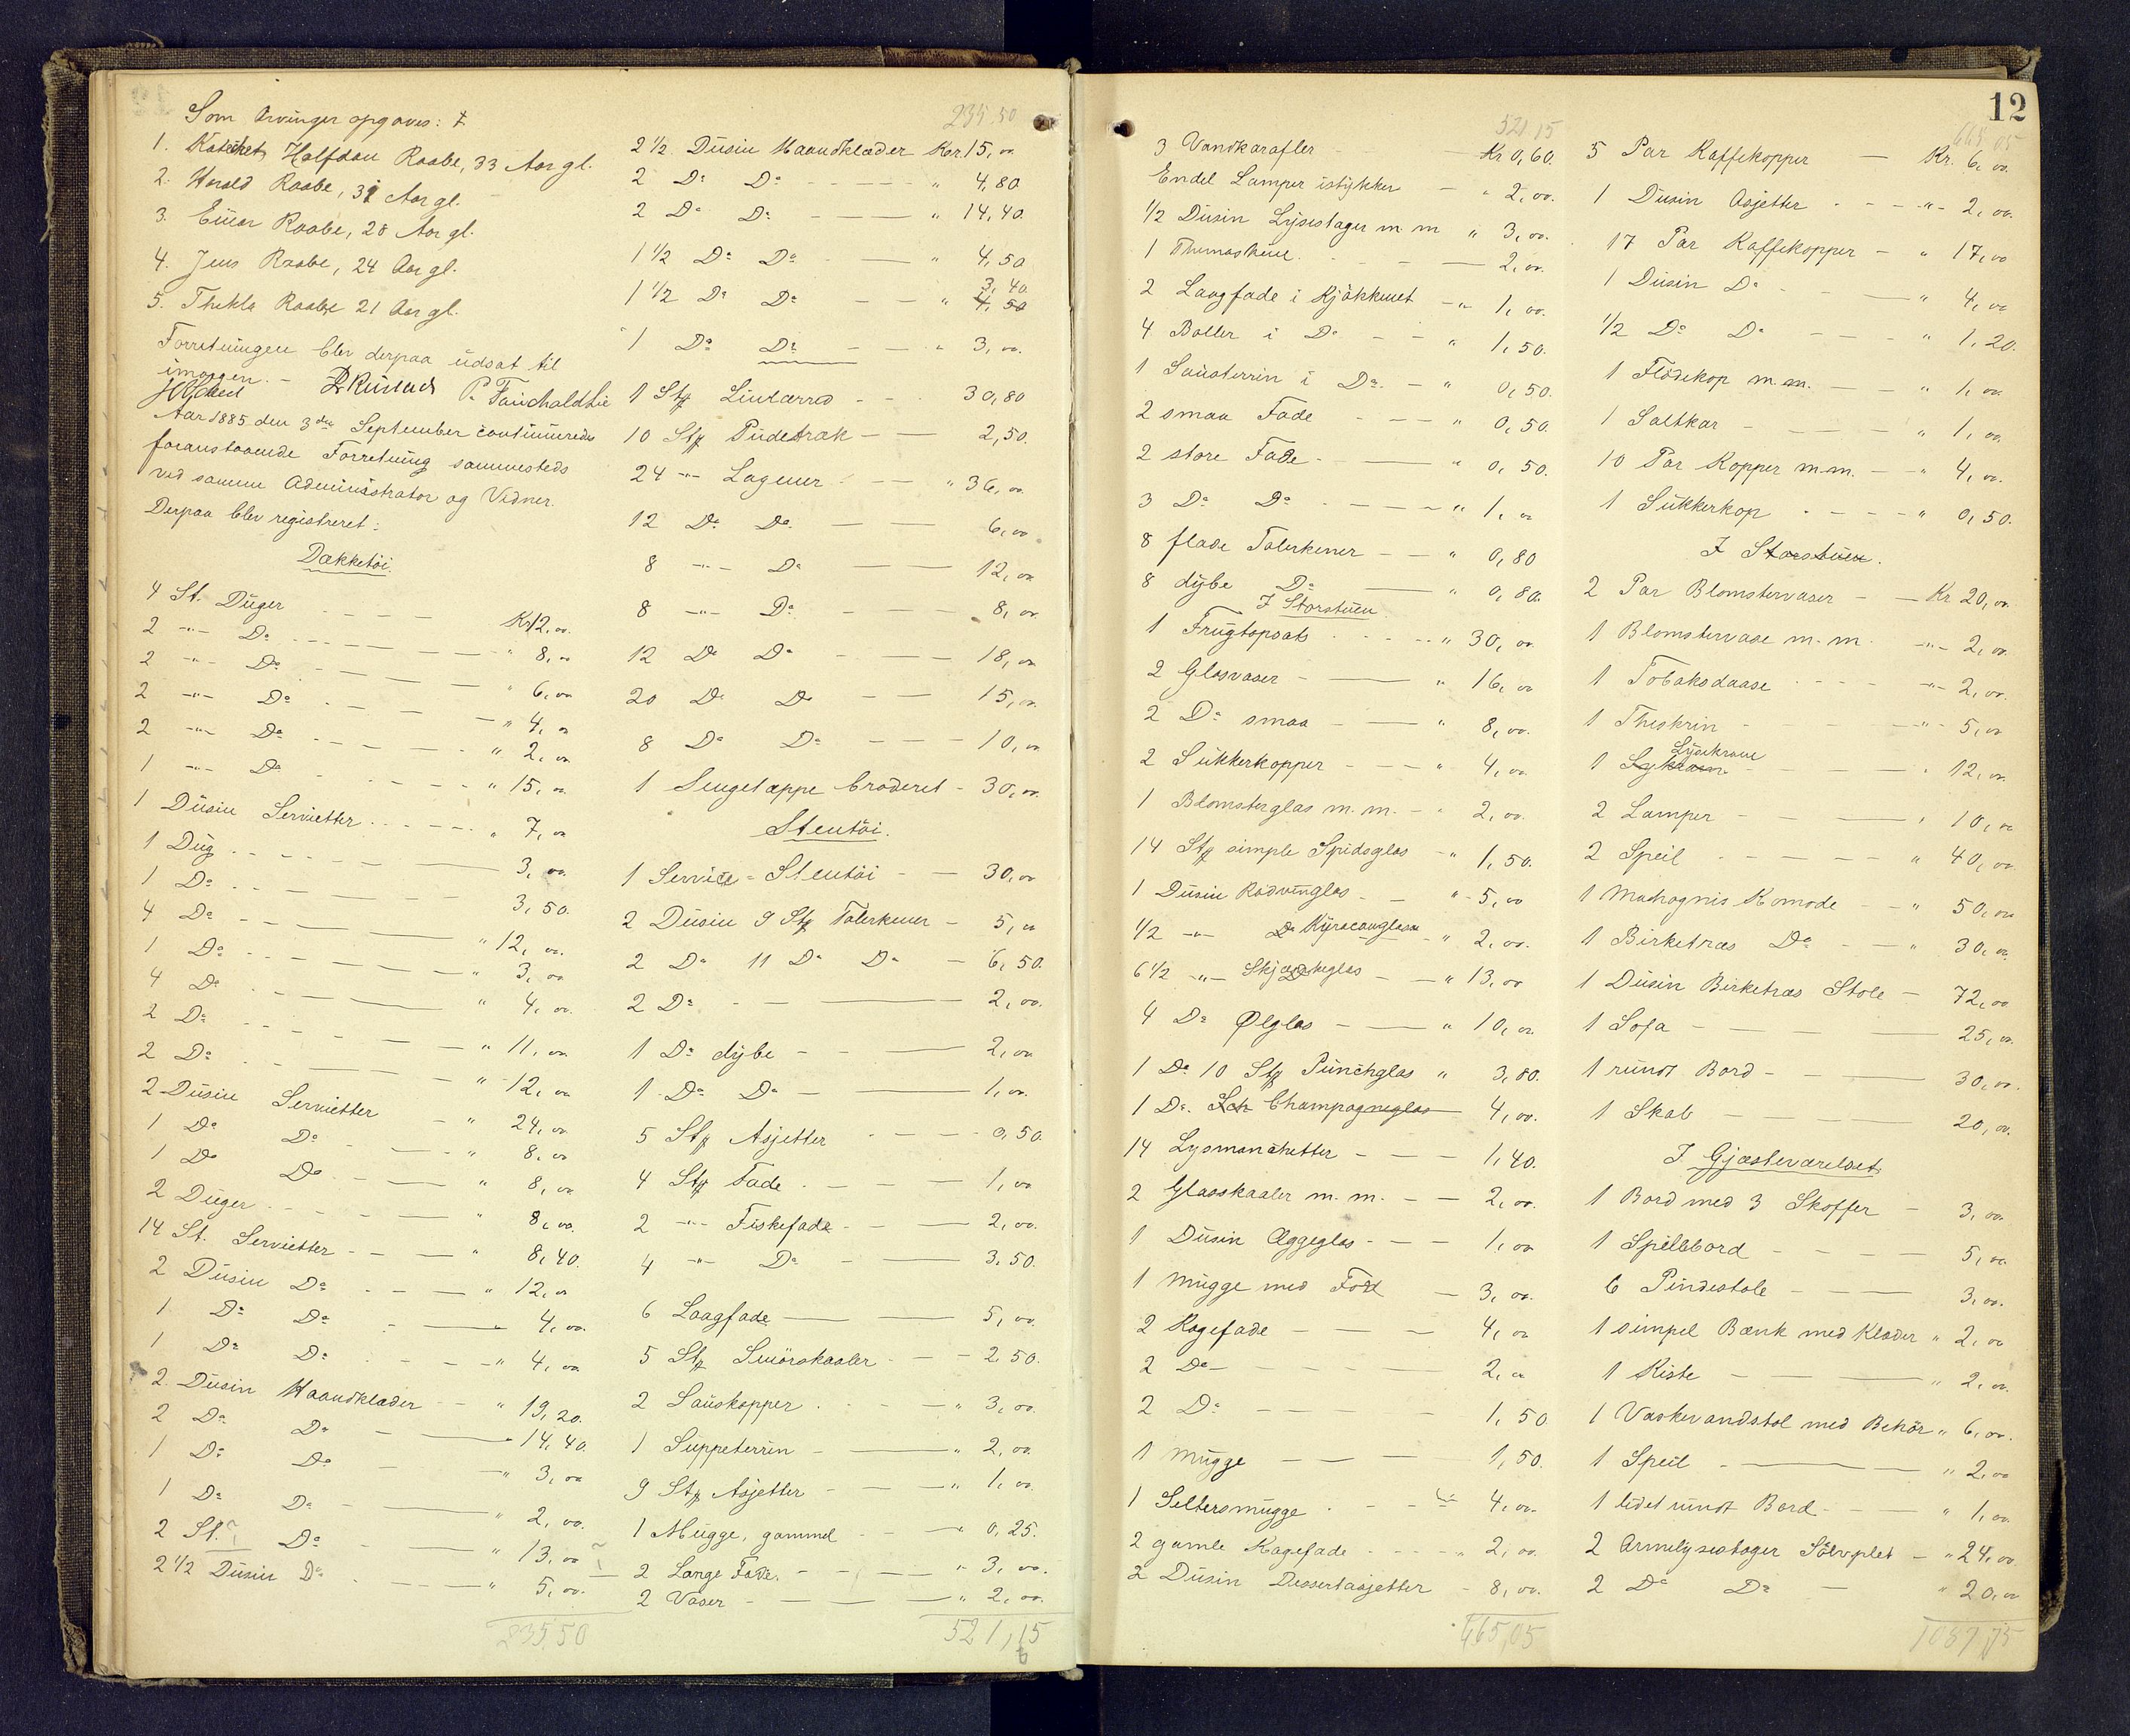 Som Arvinger opgaves:
1. Katechet Halfdan Raabe, 33 Aar gl.
2. Harald Raabe, 31 Aar gl.
3. Einar Raabe, 28 Aar gl.
4. Jens Raabe, 24 Aar gl.
5. Thekla Raabe 21 Aar gl.
Forretningen blev derpaa udsat til
imorgen. –
Aar 1885 den 3die September continueredes
foranstaaende Forretning sammesteds
ved samme Administrator og Vidner.
Derpaa blev registreret:
Dækketöi.
4 St. Duger - - - Kr 12,00.
2 -"- Do - - - " 8,00
2 -"- Do - - - " 6,00
2 -"- Do - - - " 4,00
2 -"- Do - - - " 2,00
1 -"- Do - - - " 15,00
1 Dusin Servietter - - - " 7,00
1 Dug - - - 3,00.
1 Do - - - 3,50.
4 Do - - - " 12,00.
1 Do - - - " 3,00
4 Do - - - " 4,00.
2 Do - - - " 11,00
2 Do - - - " 12,00
2 Dusin Servietter - " 24,00
1 Do Do - - - " 8,00
1 Do Do - - - " 8,00
2 Duger - - - " 8,00.
14 St. Servietter - - - " 8,40.
2 Dusin Do - - - " 12,00
1 Do Do - - - 4,00.
1 Do Do - - - " 4,00
2 Dusin Haandklæder - - " 19,20.
2 Do Do - - - 14,40.
1 Do Do - - - " 3,00
1 Do Do - - - " 2,00.
2 St. Do - - - " 13,00
2 1/2 Dusin Do - - - " 5,00.
235,50
235.50
2 1/2 Dusin Haandklæder Kr 15,00
2 Do Do - - - " 4,80
2 Do Do - - - " 14,40.
1 1/2 Do Do - - - " 4,50
3,40
1 1/2 Do Do - - - " 4,50
1 Do Do - - - " 3,00.
1 Stk Lintærred - - - 30,80
10 Stk Pudetræk - - - 2,50.
24 -"- Lagener - - - " 36,00
12 Do Do - - - 6,00
8 -"- Do - - - 12,00
8 -"- Do - - - 8,00
12 Do Do - - - 18,00
20 Do Do - - - 15,00.
8 Do Do - - - 10,00
1 Sengetæppe broderet - 30,00.
Stentöi.
1 Service - Stentöi - - 30,00
2 Dusin 9 Stk Talerkener - 5,00
2 Do 11 Do Do - 6,50.
2 Do - - - 2,00.
1 Do dybe - - - 2,00
1 Do Do - - - 1,00.
5 Stk Asjetter - - - 0,50.
4 Stk Fade - - - 1,00
2 -"- Fiskefade - - - 2,00.
4 -"- Do - - - 3,50.
6 Laagfade - - - 5,00.
5 Stk Smörskaaler - - - 2,50.
2 Sauskopper - - - " 3,00.
1 Suppeterrin - - - " 2,00.
9 Stk Asjetter - - - " 1,00.
1 Mugge, gammel - - - " 0,25.
2 Lange Fade - - - " 3,00.
2 Vaser - - - " 2,00.
521,15
12
521.15
3 Vandkarafler - - - Kr 0,60.
Endel Lamper istykker - " 2,00.
1/2 Dusin Lysestager m.m " 3,00.
1 - - - 2,00.
2 Laagfade i Kjökkenet - " 1,00.
4 Boller i Do - - - " 1,50.
1 Sausterrin i Do. - " 0,50.
2 smaa Fade - - - " 0,50.
2 store Fade - - - " 0,50.
3 Do Do - - - " 1,00
8 flade Talerkener - - " 0,80
8 dybe Do - - - " 0,80.
I Storstuen
1 Frugtopsats - - - " 30,00.
2 Glasvaser - - - " 16,00
2 Do smaa - - - " 8,00.
2 Sukkerkopper - - - " 4,00
1 Blomsterglas m.m. - " 2,00.
14 Stk simple Spidsglas - " 1,50.
1 Dusin Rödvinglas - - " 5,00
1/2 -"- Do Kyracauglas " 2,00.
6 1/2 -"- - - " 13,00
4 Do Ølglas - - - " 10,00
1 Do 10 Stk Punchglas " 3,80.
1 Do. Champagneglas 4,00.
14 Lysmanchetter - - - 1,40.
2 Glasskaaler m.m. - - 2,00.
1 Dusin Æggeglas - - - 1,00
1 Mugge med Fod - 3,00.
2 Kagefade - - - 4,00
2 Do - - - 2,00
2 Do - - - 1,50
1 Mugge - - - 1,50.
1 Seltersmugge - - - 4,00.
2 gamle Kagefade - - - " 2,00.
2 Dusin Dessertasjetter - 8,00.
665,05
665,05
5 Par Kaffekopper - Kr. 6,00.
1 Dusin Asjetter - - - " 2,00.
17 Par Kaffekopper - " 17,00
1 Dusin Do - - - " 4,00
1/2 Do Do - - - " 1,20.
1 Flödekop m.m. - - " 1,00
1 Saltkar - - - " 1,00
10 Par Kopper m.m. - " 4,00.
1 Sukkerkop - - - " 0,50.
I Storstuen.
2 Par Blomstervaser - - Kr 20,00
1 Blomstervase m.m. -"- 2,00.
1 Tobaksdaase - - - -"- 2,00.
1 Theskrin - - - -"- 5,00
Lysekrone
1 - - - " 12,00
2 Lamper - - - " 10,00
2 Speil - - - " 40,00
1 Mahognis Komode - - " 50,00
1 Birketræs Do - - " 30,00
1 Dusin Birketræs Stole - 72,00
1 Sofa - - - 25,00.
1 rundt Bord - - - 30,00.
1 Skab - - - 20,00.
I Gjæsteværelset.
1 Bord med 3 Skuffer - 3,00
1 Spillebord - - - 5,00
6 Pindestole - - - 3,00.
1 simpel Bænk med Klæder " 2,00
1 Kiste - - - " 2,00.
1 Vaskevandstol med Behör " 6,00.
1 Speil - - - " 2,00
1 lidet rundt Bord - - - " 1,00
2 Armelysestager Sölvplet - " 24,00
2 Do Do - " 20,00
1087,75